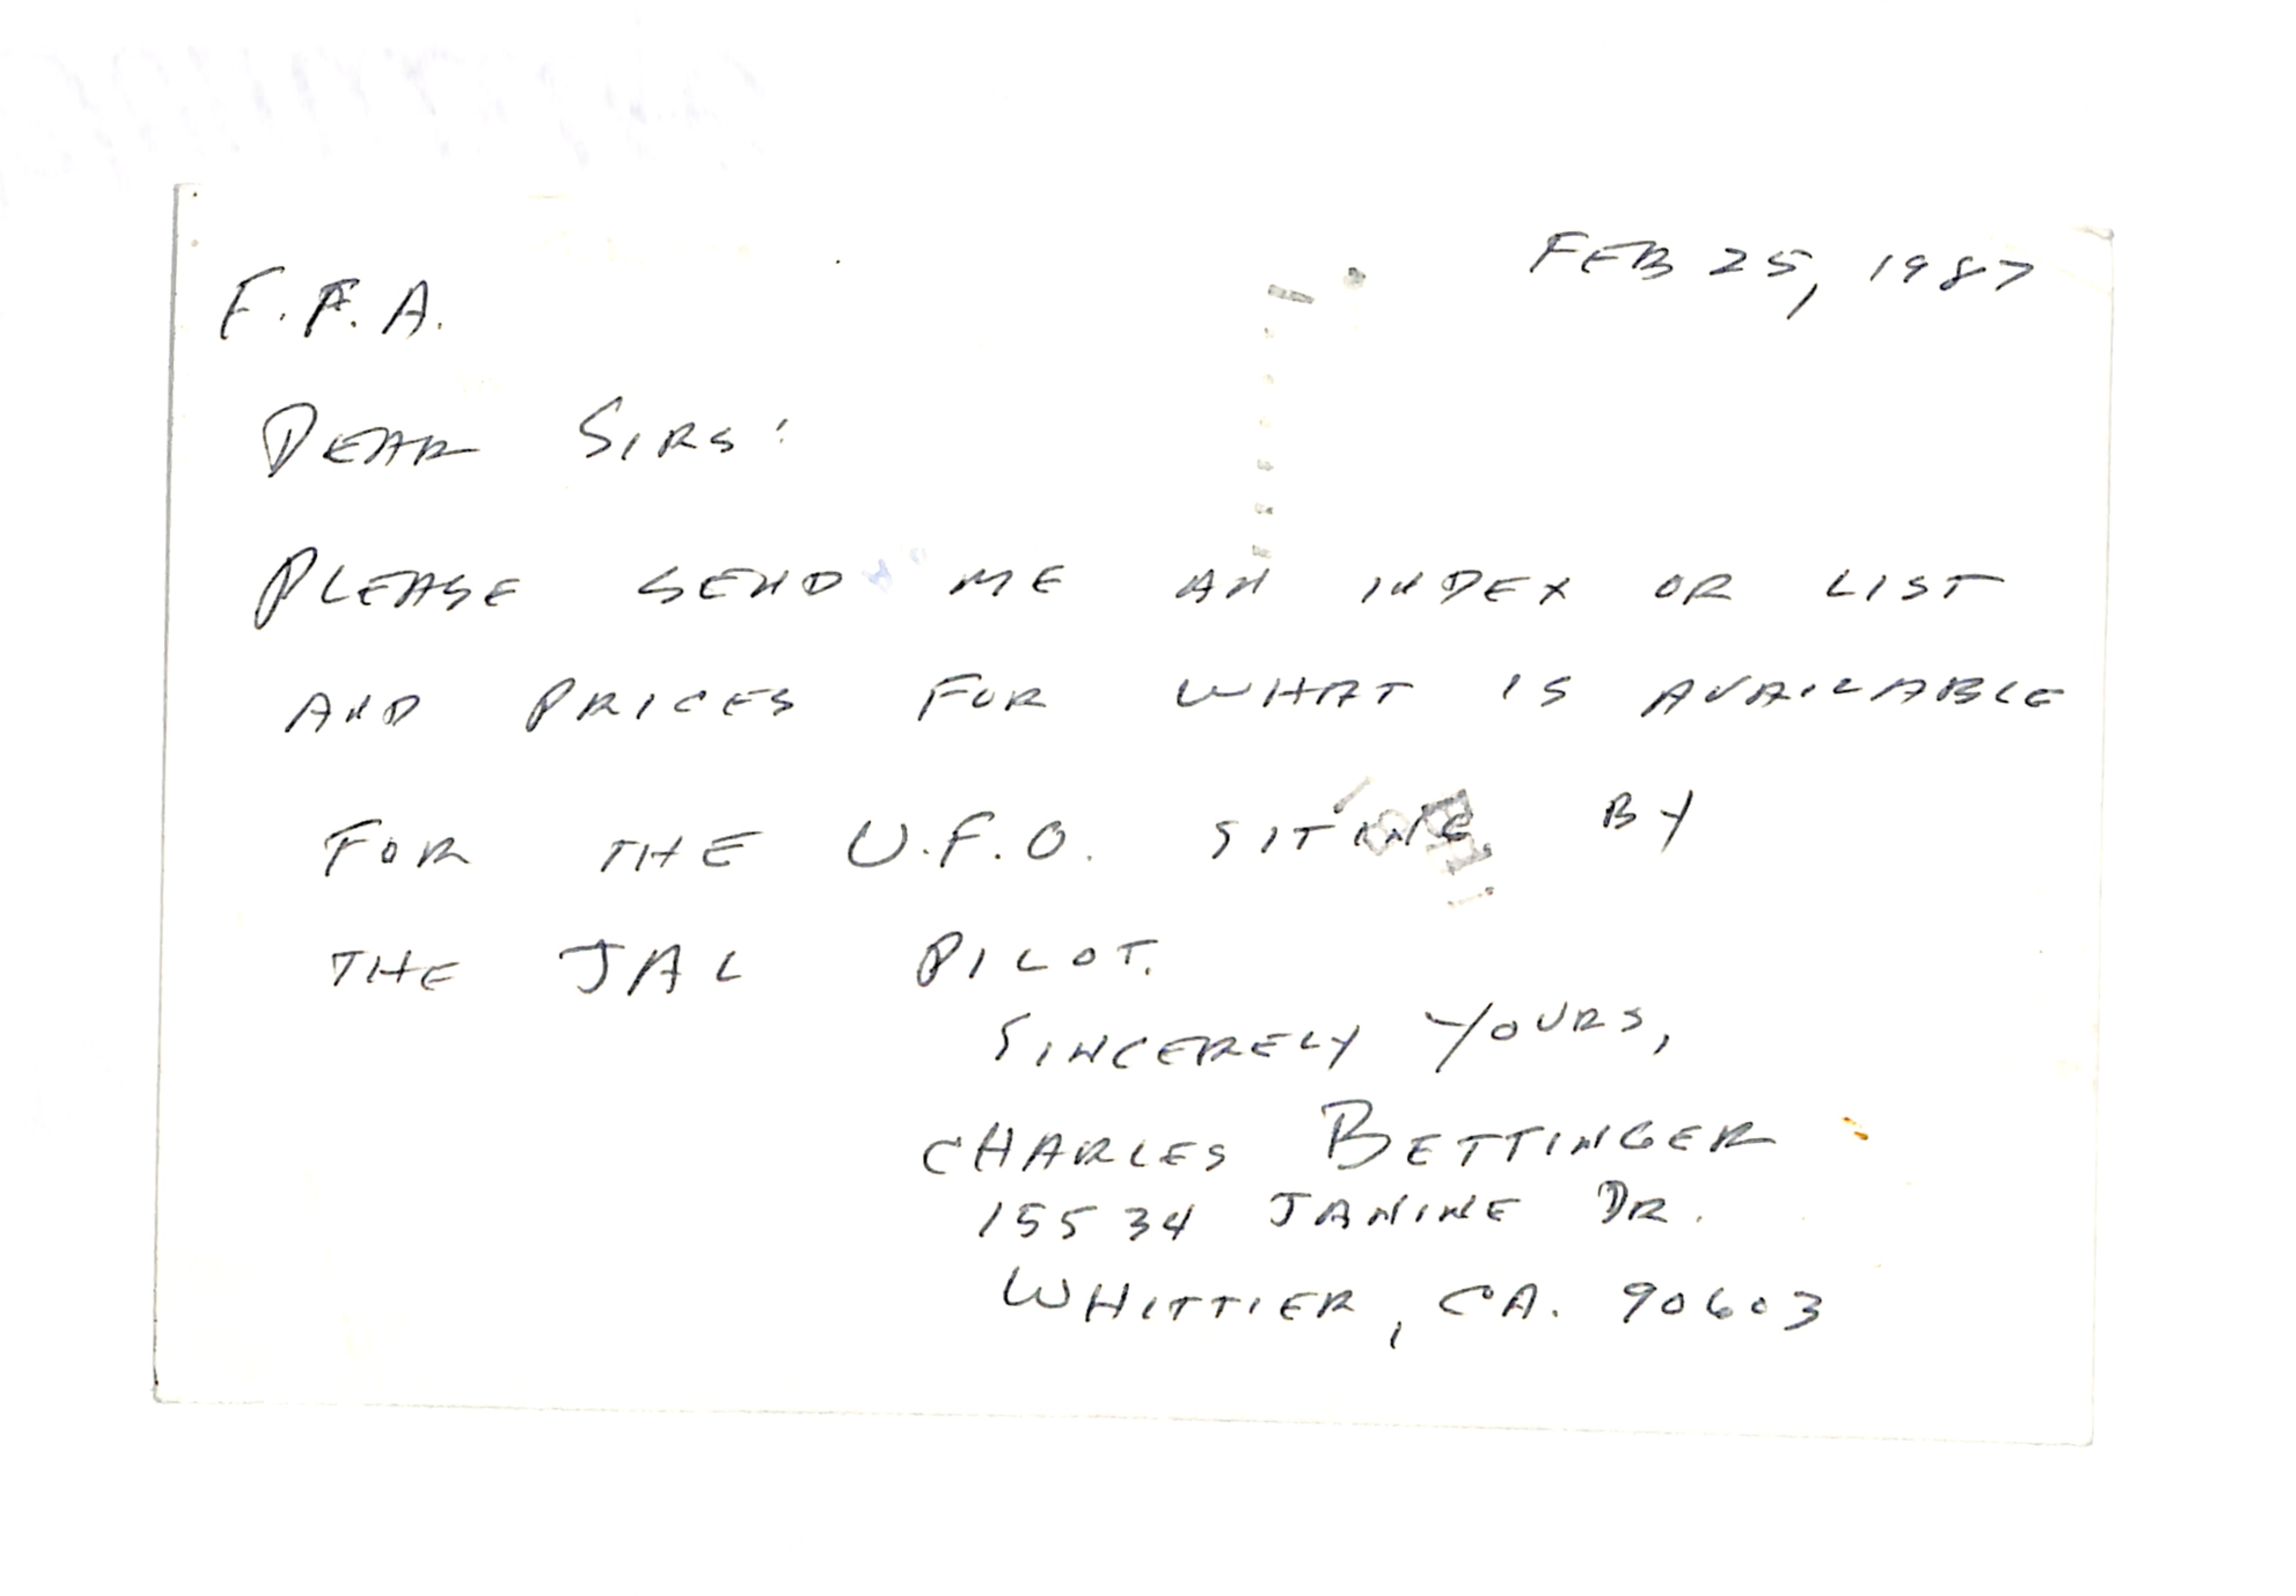 FEB 25, 1987
F.A.A.
DEAR SIRS:
PLEASE SEND ME AN INDEX OR LIST
AND PRICES FOR WHAT IS AVAILABLE
FOR THE U.F.O. SITING BY
THE JAL PILOT.
SINCERELY YOURS,
CHARLES BETTINGER
15534 JANINE DR.
WHITTIER, CA. 90603